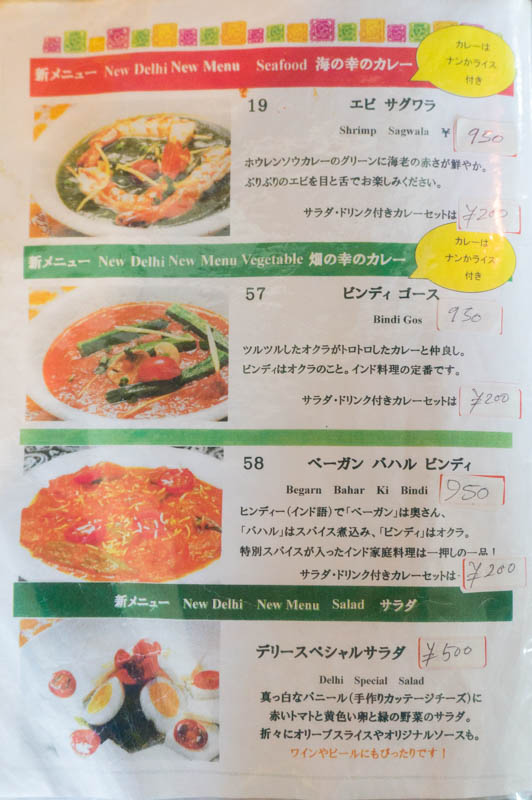 新メニュー New Delhi New Menu Seafood 海の幸のカレー
カレーは
ナンかライス
付き
19 エビ サグワラ
Shrimp Sagwala ￥ 950
ホウレンソウカレーのグリーンに海老の赤さが鮮やか。
ぷりぷりのエビを目と舌でお楽しみください。
サラダ・ドリンク付きカレーセットは ￥200
新メニュー New Delhi New Menu Vegetable 畑の幸のカレー
カレーは
ナンかライス
付き
57 ビンディ ゴース
Bindi Gos 950
ツルツルしたオクラがトロトロしたカレーと仲良し。
ビンディはオクラのこと。インド料理の定番です。
サラダ・ドリンク付きカレーセットは ￥200
58 ベーガン バハル ビンディ
Begarn Bahar Ki Bindi 950
ヒンディー（インド語）で「ベーガン」は奥さん、
「バハル」はスパイス煮込み、「ビンディ」はオクラ。
特別スパイスが入ったインド家庭料理は一押しの一品！
サラダ・ドリンク付きカレーセットは ￥200
新メニュー New Delhi New Menu Salad サラダ
デリースペシャルサラダ ￥500
Delhi Special Salad
真っ白なパニール（手作りカッテージチーズ）に
赤いトマトと黄色い卵と緑の野菜のサラダ。
折々にオリーブスライスやオリジナルソースも。
ワインやビールにもぴったりです！